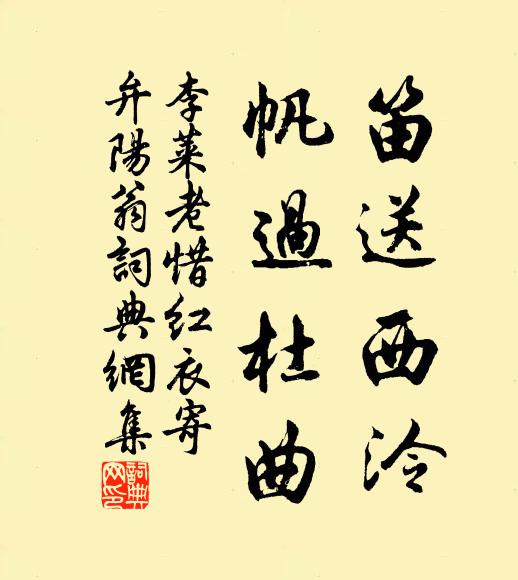 笛送西泠
帆過杜曲
李萊老惜紅衣寄
弁陽翁詞典網集
詞典網印